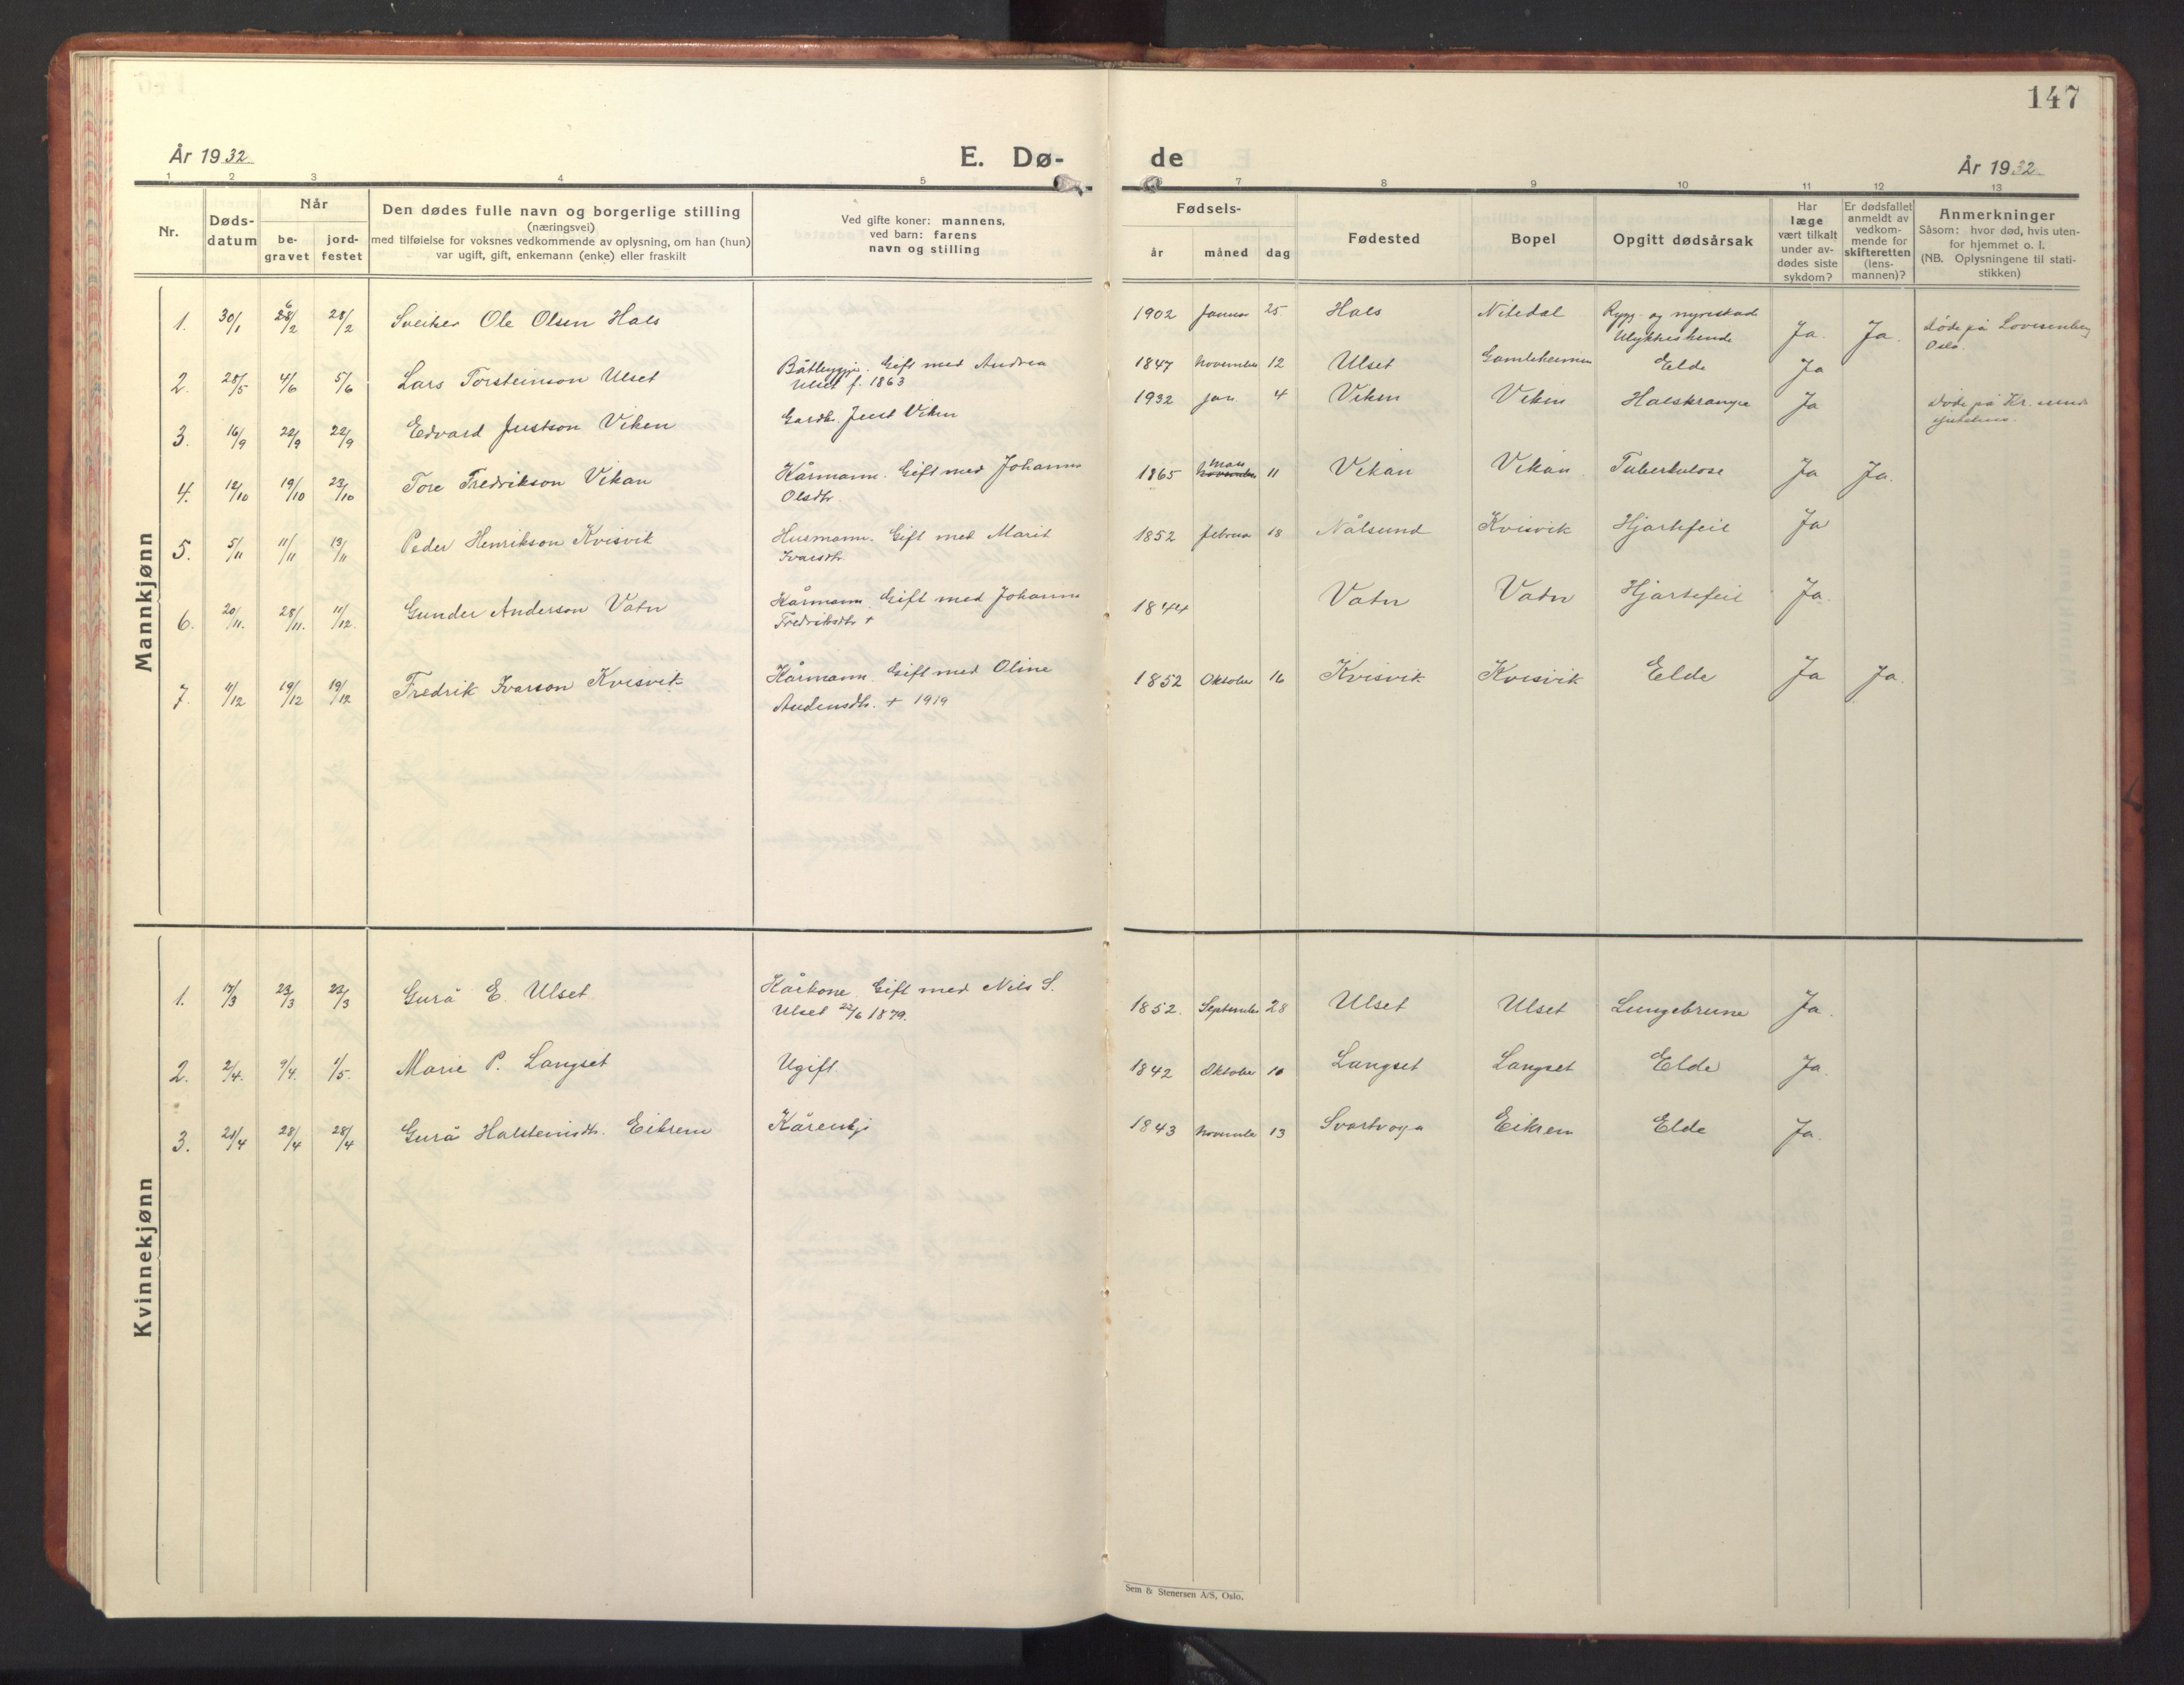 147
År 1932
E. Dø-
de
År 1932
1 2 3 4 5
6 7 8 9 10 11 12 13
Nr.
Døds-
datum
Når
be-
gravet
jord-
festet
Den dødes fulle navn og borgerlige stilling
(næringsvei)
med tilføielse for voksnes vedkommende av oplysning, om han (hun)
var ugift, gift, enkemann (enke) eller fraskilt
Ved gifte koner: mannens,
ved barn: farens
navn og stilling
Fødsels-
år måned dag
Fødested
Bopel
Opgitt dødsårsak
Har
læge
vært tilkalt
under av-
dødes siste
sykdom?
Er dødsfallet
anmeldt av
vedkom-
mende for
skifteretten
(lens-
mannen)?
Anmerkninger
Såsom: hvor død, hvis uten-
for hjemmet o. l.
(NB. Oplysningene til stati-
stikken)
Mannkjønn
1. 30/1 28/2 Sveitser Ole Olsen Hals 1902 Januar 25 Hals Nitedal Rygg- og nyreskade Ja. Ja. Døde på Lovisenberg
Ulykkeshende
Oslo.
2. 28/5 4/6 5/6 Lars Torsteinson Ulset Båtbyggje. Gift med Andrea 1847 November 12 Ulset Gamleheimen Elde Ja
Ulset f. 1863
3. 16/9 22/9 22/9 Edvard Justson Viken Gardbr. Just Viken 1932 jan 4 Viken Viken Halskrangel Ja Døde på Kr.sund
sjukehus.
4. 12/10 19/10 23/10 Tore Fredrikson Vikan Kårmann. Gift med Johanna 1865 Mars November 11 Vikan Vikan Tuberkulose Ja Ja.
Olsdtr.
5. 5/11 11/11 13/11 Peder Henrikson Kvisvik Husmann. Gift med Marit 1852 februar 18 Nålsund Kvisvik Hjartefeil Ja
Ivarsdtr.
6. 20/11. 28/11. 11/12. Gunder Anderson Vatn Kårmann. Gift med Johanna 1844 Vatn Vatn Hjartefeil Ja.
Fredriksdtr +
7. 11/12 19/12 19/12 Fredrik Ivarson Kvisvik Kårmann. Gift med Oline 1852 Oktober 16 Kvisvik Kvisvik Elde Ja Ja.
Andersdtr. + 1919
Kvinnekjønn
1. 17/3 23/3 23/3 Gurå E. Ulset Kårkone. Gift med Nils S. 1852. September 28 Ulset Ulset Lungebrune Ja.
Ulset 22/6 1879.
2. 2/4. 9/4. 1/5. Marie P. Langset Ugift 1842 Oktober 10 Langset Langset Elde Ja.
3. 21/4 28/4 28/4 Gurå Halsteinsdtr. Eikrem Kårenkje 1843 November 13 Svartvoga Eikrem Elde Ja.
Sem & Stenersen A/S, Oslo.